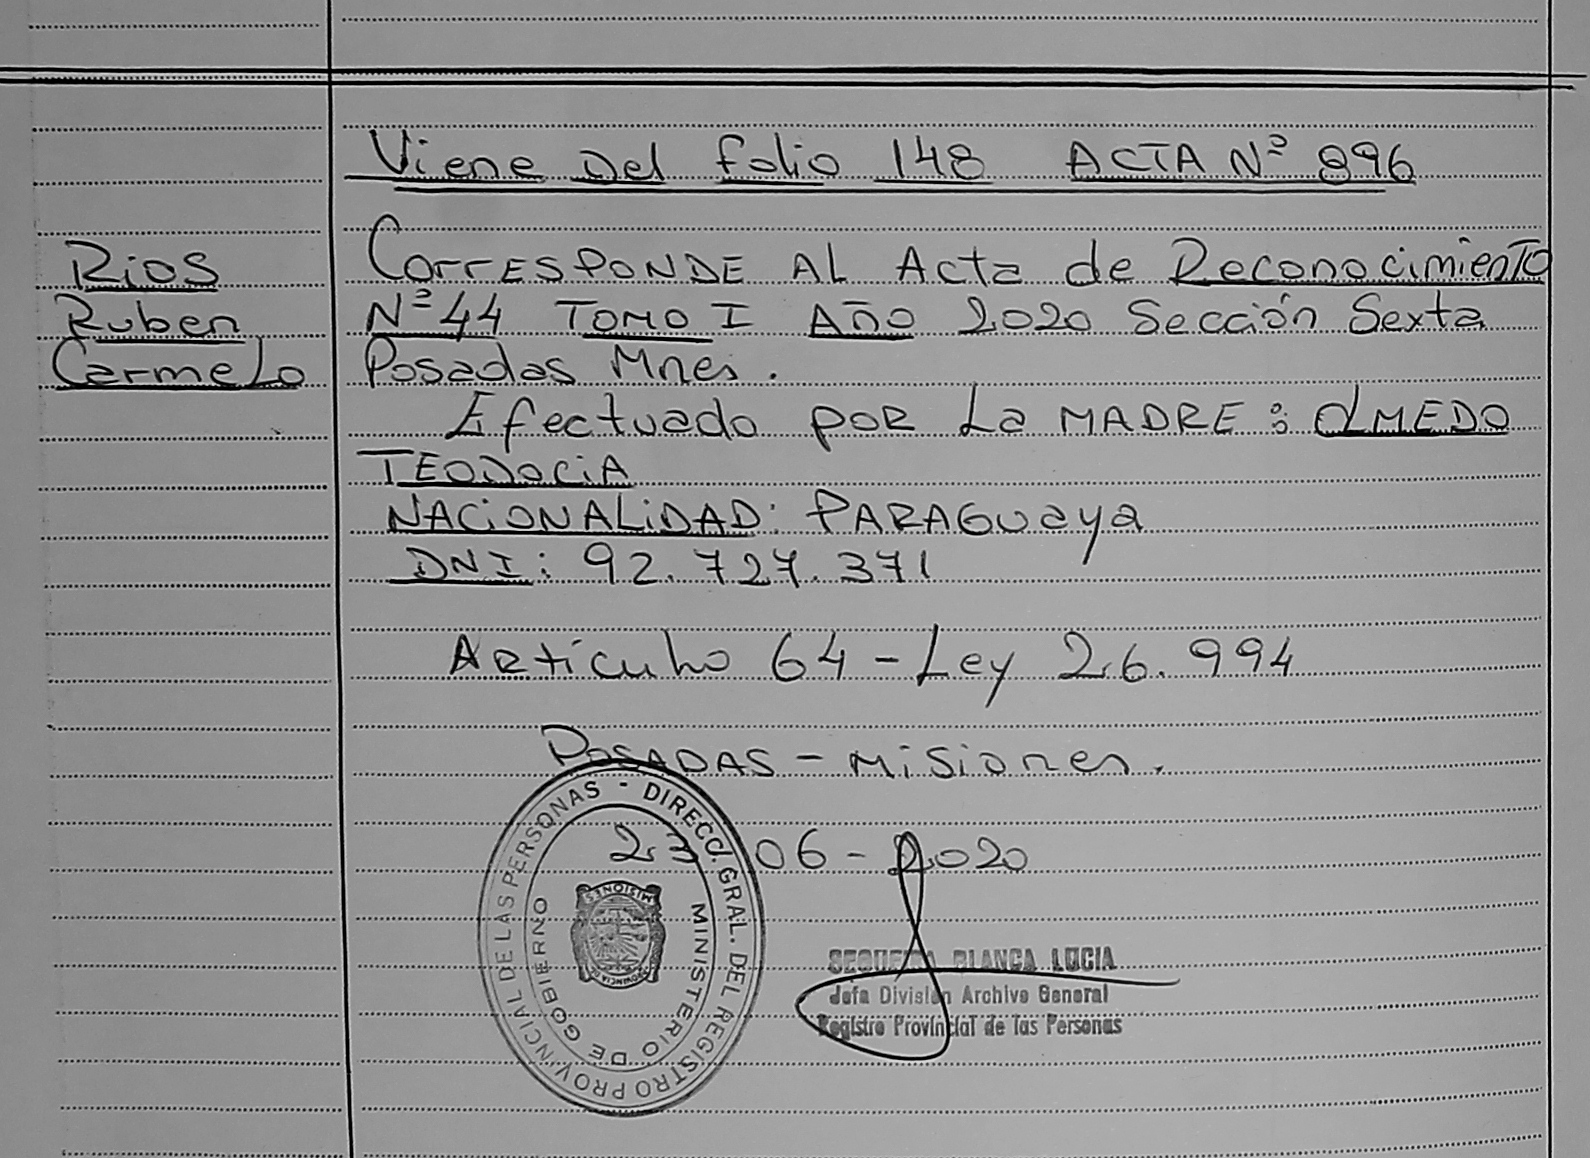 Viene Del folio 148 ACTA Nº 896
Rios
Ruben
Carmelo
Corresponde al Acta de Reconocimiento
Nº 44 TOMO I Año 2020 Sección Sexta
Posadas Mnes.
Efectuado por La MADRE: OLMEDO
TEODOCIA
NACIONALIDAD: PARAGUaya
DNI: 92.727.371
Articulo 64 - Ley 26.994
POSADAS - Misiones.
23 06 - 2020
DIRECC. GRAL. DEL REGISTRO PROVINCIAL DE LAS PERSONAS -
MINISTERIO DE GOBIERNO
MISIONES
PROVINCIA DE
BLANCA LUCIA
Jefa División Archivo General
Registro Provincial de las Personas